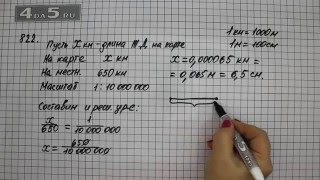 4ДА5.РУ
822.
Пусть X км – длина ж.д. на карте
На карте X км
На местн. 650 км
Масштаб 1:10 000 000
Составим и реш. ур-е:
x/650 = 1/10 000 000
x = 650/10 000 000
1 км = 1000 м
1 м = 100 см
X = 0,000065 км =
= 0,065 м = 6,5 см.